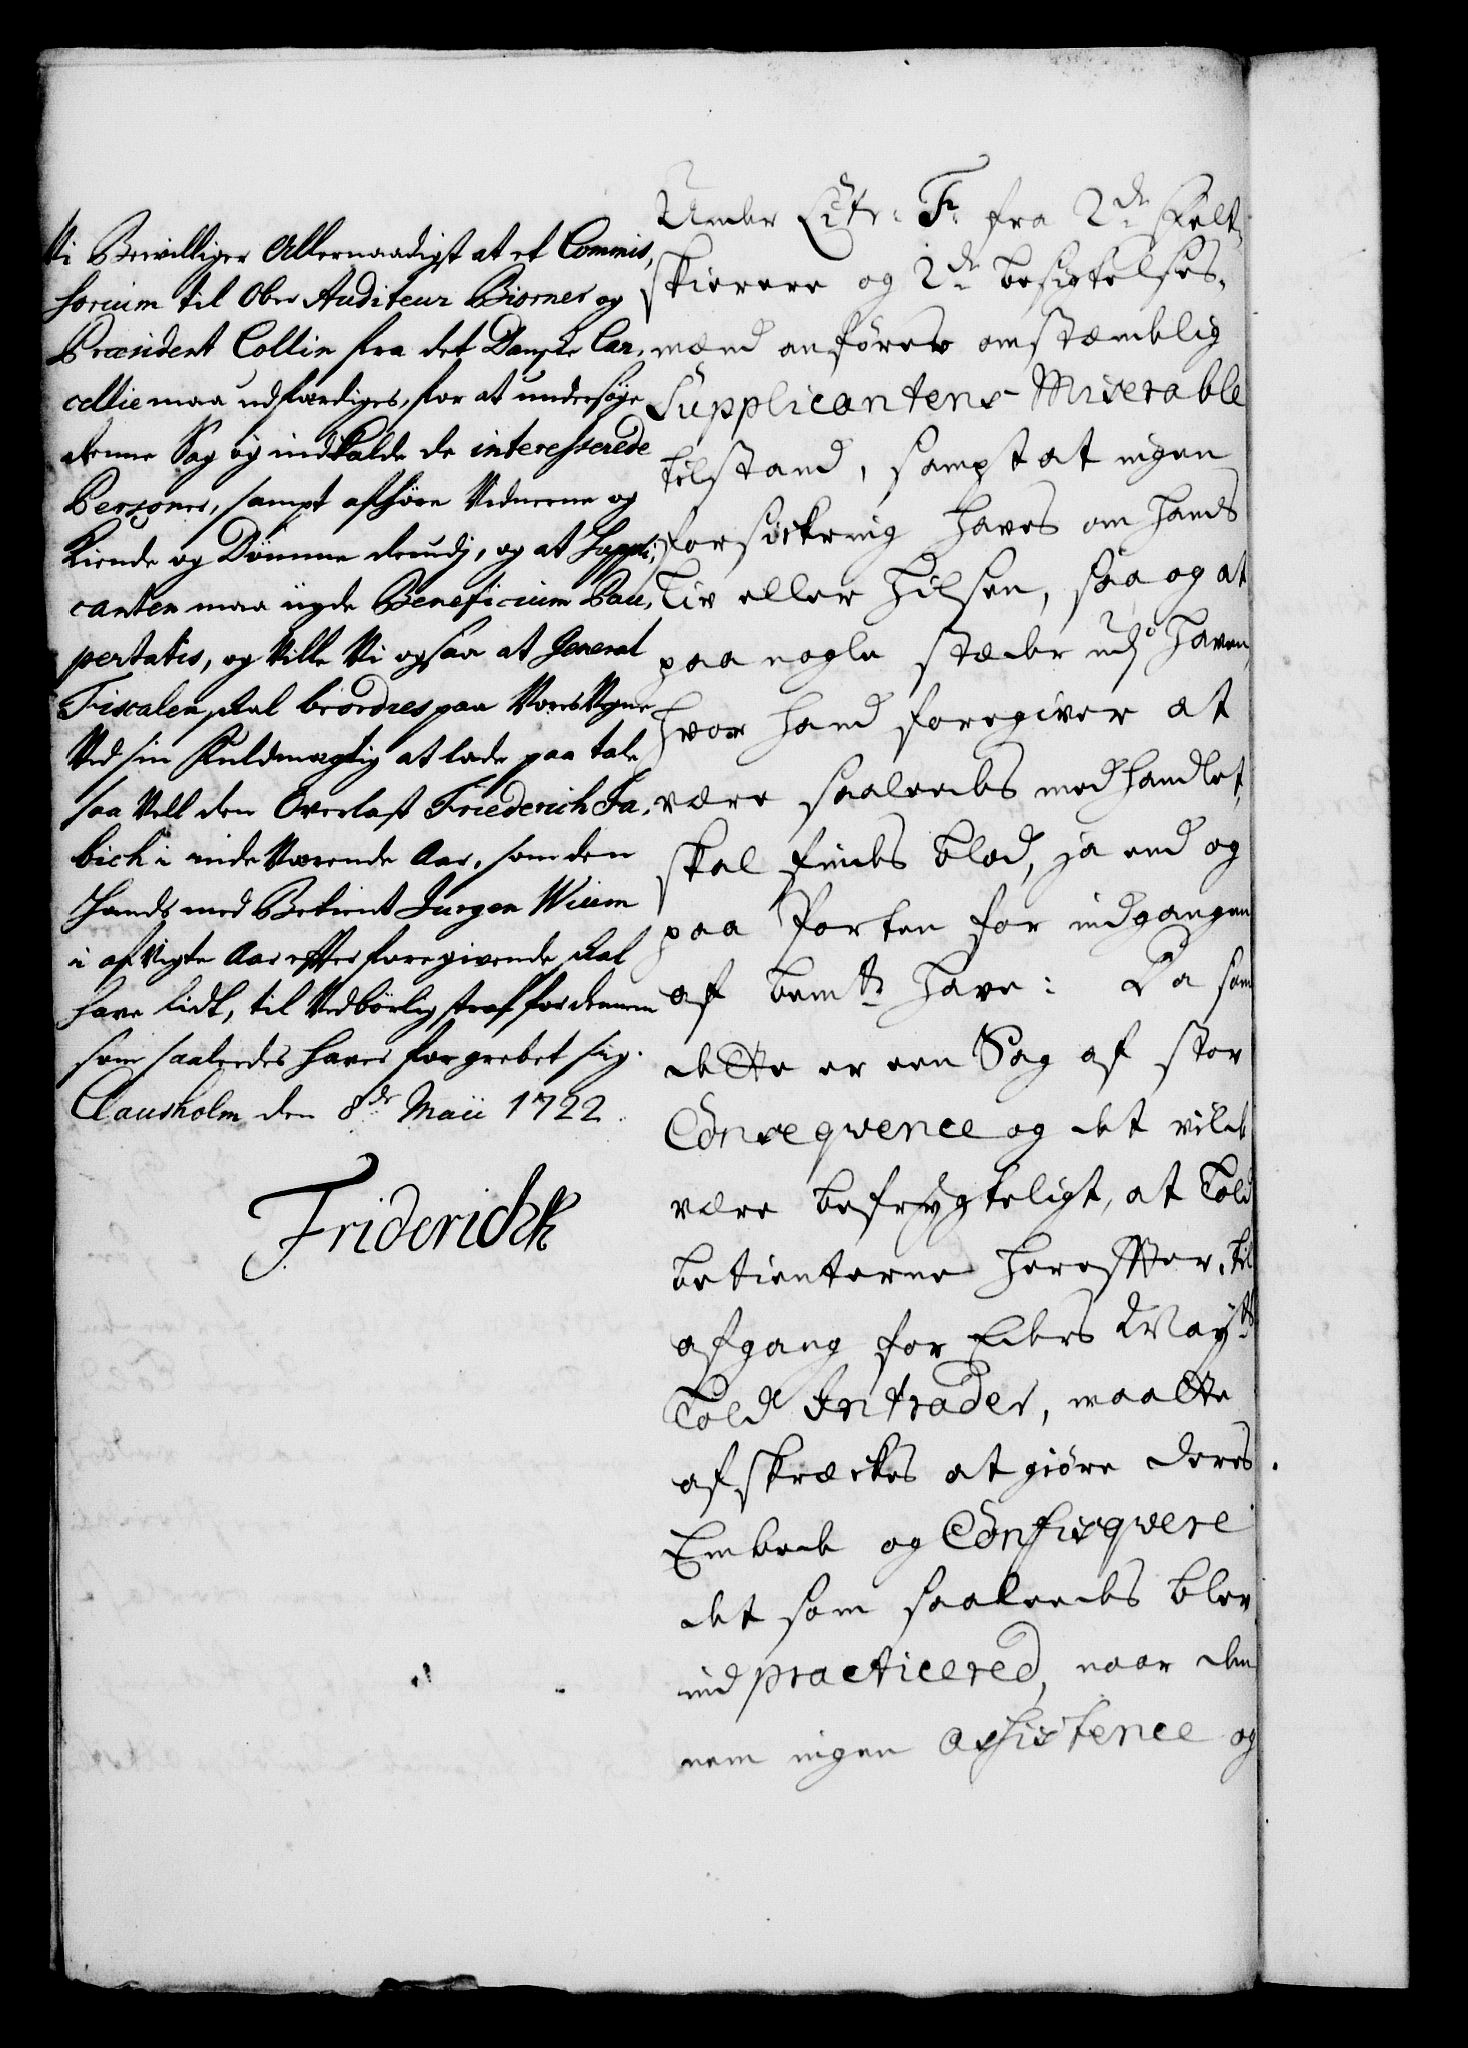 Vi Bevilliger Allernaadigst at et Commis,
sorium til Ober Auditeur Biørner og
Præsident Collin fra det Danske Can,
cellie maa udfærdiges, for at undersøge
denne Sag og indkalde de interesserede
Personer, sampt afhöre Vidnerne og
Kiende og Dömme derudj, og at Suppli,
canten maa nyde Beneficium Pau,
pertatis, og Ville Vi ogsaa at General
Fiscalen skal beordres paa Vores Vegne
Ved sin Fuldmægtig at lade paa tale
saa Vell den Overlast Friederich Fa,
bich i indeVærende Aar, som den
Hands med Betient Jurgen Wium
i afvigte Aar efter foregivende skal
have lidt, til Vedbörlig straf for dennem
som saaledes haver forgrebet sig.
Clausholm den 8de Maii 1722.
Friderich
Under Litr: F. fra 2de Felt,
skierere og 2de besigtelses,
mænd anföres omstændlig
Supplicantens Miserable
tilstand, sampt at ingen
forsickring haves om hands
Liv eller Hilsen, saa og at
paa nogle stæder udj Haven,
hvor hand foregiver at
være saaledes medhandlet,
skal findes blod, ja end og
paa Porten for indgangen
af bemte Have: Da som
dette er een Sag af stor
Conseqvence og det vilde
være befrygteligt, at Told
betienterne herefter, til
afgang for Eders Mayts
Told Intrader, maatte
afskreckes at giöre deres
Embede og Confisqvere
det som saaledes blev
ind practicered, naar den
nem ingen assistence og